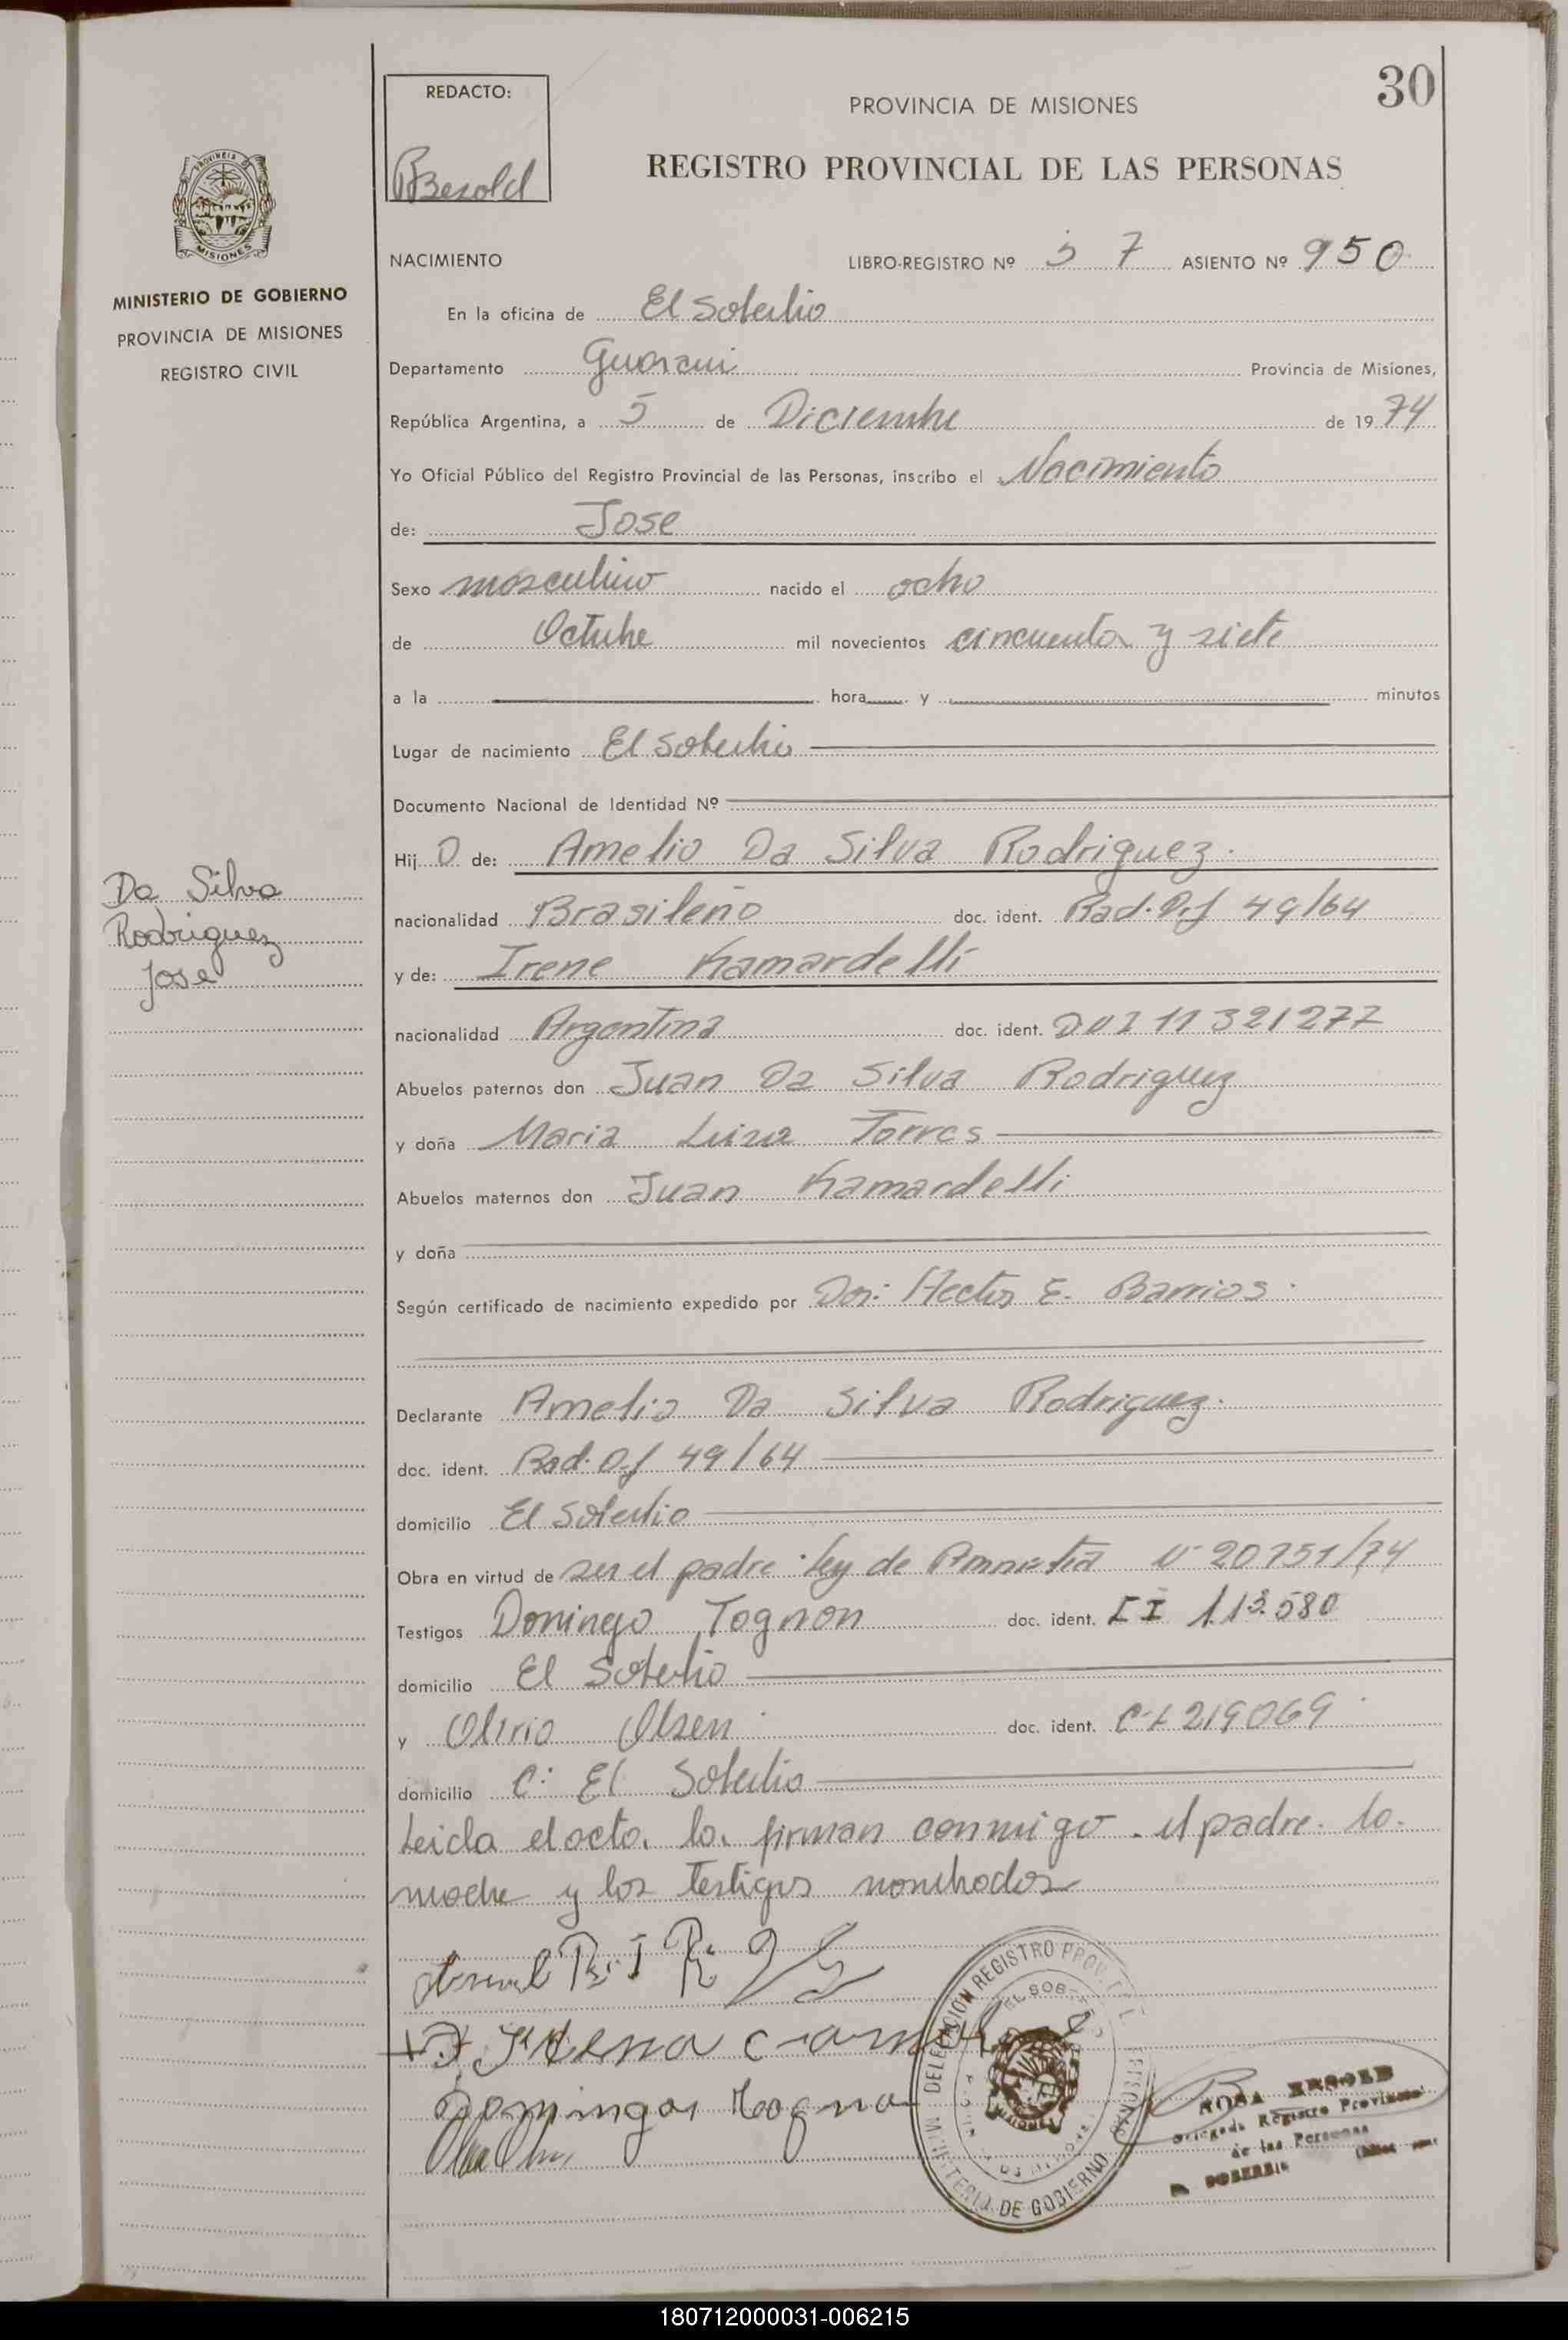 30
REDACTO:
PROVINCIA DE MISIONES
REGISTRO PROVINCIAL DE LAS PERSONAS
Bezold
PROVINCIA DE
MISIONES
MINISTERIO DE GOBIERNO
PROVINCIA DE MISIONES
REGISTRO CIVIL
NACIMIENTO LIBRO-REGISTRO Nº 5 7 ASIENTO Nº 950
En la oficina de El Soberbio
Departamento Guarani Provincia de Misiones,
República Argentina, a 5 de Diciembre de 1974
Yo Oficial Público del Registro Provincial de las Personas, inscribo el Nacimiento
de: Jose
Sexo masculino nacido el ocho
de Octubre mil novecientos cincuenta y siete
a la hora y minutos
Lugar de nacimiento El Soberbio
Documento Nacional de Identidad Nº
Hij O de: Amelio Da Silva Rodriguez.
Da Silva
Rodriguez
Jose
nacionalidad Brasileño doc. ident. Rad. Of 49/64
y de: Irene Kamardelli
nacionalidad Argentina doc. ident. DNI 11321277
Abuelos paternos don Juan Da Silva Rodriguez
y doña Maria Luiza Torres
Abuelos maternos don Juan Kamardelli
y doña
Según certificado de nacimiento expedido por Dor: Hector E. Barrios.
Declarante Amelio Da Silva Rodriguez.
doc. ident. Rad. Of 49/64
domicilio El Soberbio
Obra en virtud de ser el padre. Ley de Amnistia Nº 20751/74
Testigos Domingo Tognon doc. ident. CI 113.580
domicilio El Soberbio
y Olirio Olsen doc. ident. C-I 219069.
domicilio C: El Soberbio
Leida el acta. la. firman conmigo. el padre. la.
madre y los testigos nombrados
Domingos Togno
DELEGACION REGISTRO PROV. DE L PERSONAS
EL SOBERBIO
MINISTERIO DE GOBIERNO
ROSA BEZOLD
Delegada Registro Provincial
de las Personas
EL SOBERBIO
180712000031-006215